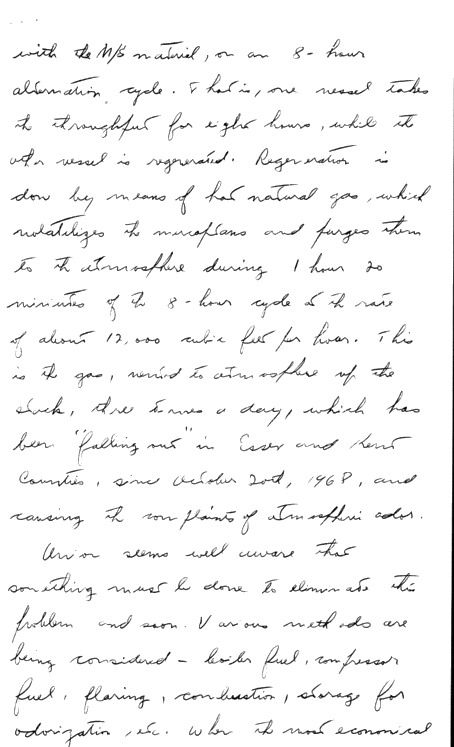 with the M/S material, on an 8-hour
alternation cycle. That is, one vessel takes
the throughput for eight hours, while the
other vessel is regenerated. Regeneration is
done by means of hot natural gas, which
volatilizes the mercaptans and purges them
to the atmosphere during 1 hour 20
minutes of the 8-hour cycle at the rate
of about 12,000 cubic feet per hour. This
is the gas, vented to atmosphere up the
stack, three times a day, which has
been "falling out" in Essex and Kent
Counties, since October 20th, 1968, and
causing the complaints of atmospheric odor.
Union seems well aware that
something must be done to eliminate this
problem and soon. Various methods are
being considered - boiler fuel, compressor
fuel, flaring, combustion, storage for
odorization, etc. When the most economical